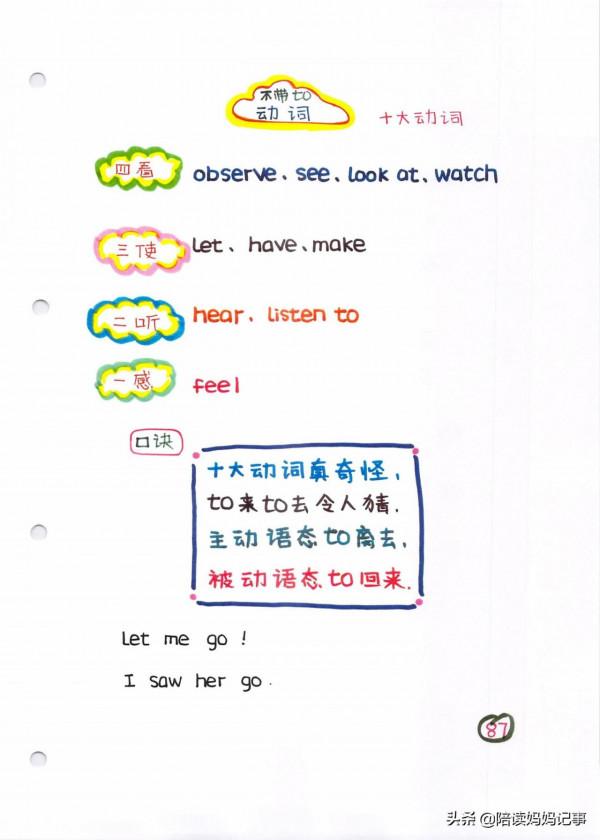 不带to
动词
十大动词
四看 observe、see、look at、watch
三使 let、have、make
二听 hear、listen to
一感 feel
口诀
十大动词真奇怪,
to来to去令人猜.
主动语态to离去,
被动语态to回来.
Let me go !
I saw her go.
87
头条 @陪读妈妈记事